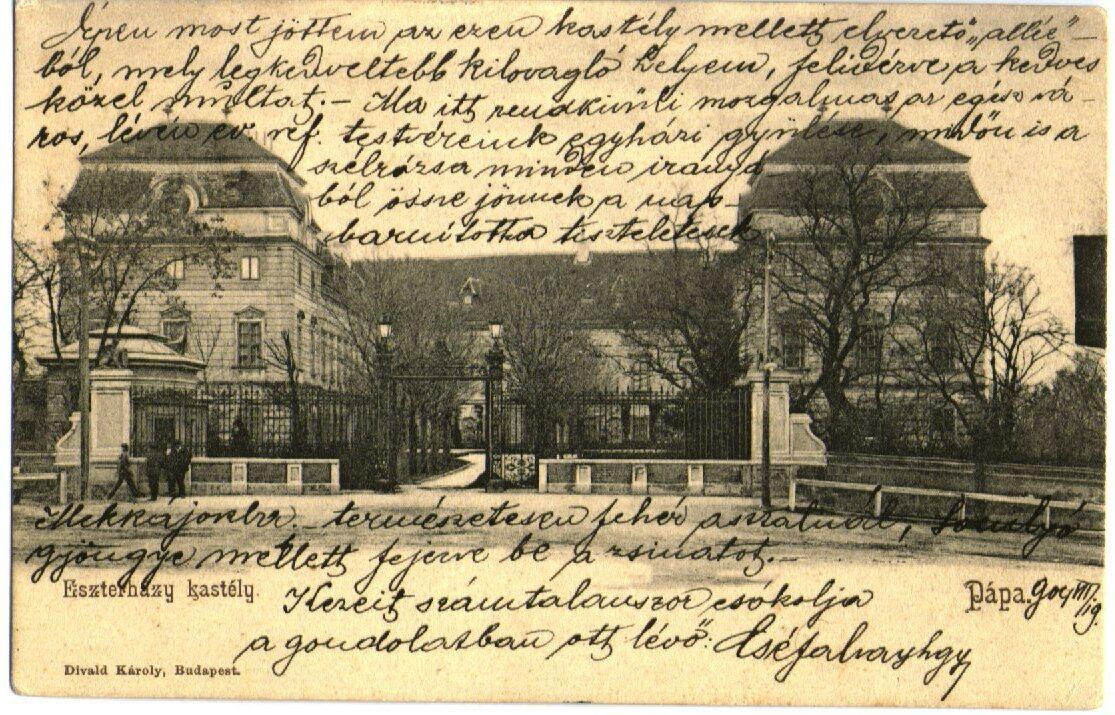 Épen most jöttem az ezen kastély mellett elvezető „allée"-
ból, mely legkedveltebb kilovagló helyem, felidézve a kedves
közel múltat. - Ma itt rendkivüli mozgalmas az egész vá-
ros, lévén ev. ref. testvéreink egyházi gyülése, midőn is a
szélrózsa minden irányá
ból össze jönnek a nap-
barnitotta tiszteletesek
Mekkájokba - természetesen fehér asztalnál, Somlyó
gyöngye mellett fejezve be a zsinatot. -
Eszterházy kastély.
Pápa. 904 VIII/19.
Kezeit számtalanszor csókolja
a gondolatban ott lévő:
Divald Károly, Budapest.